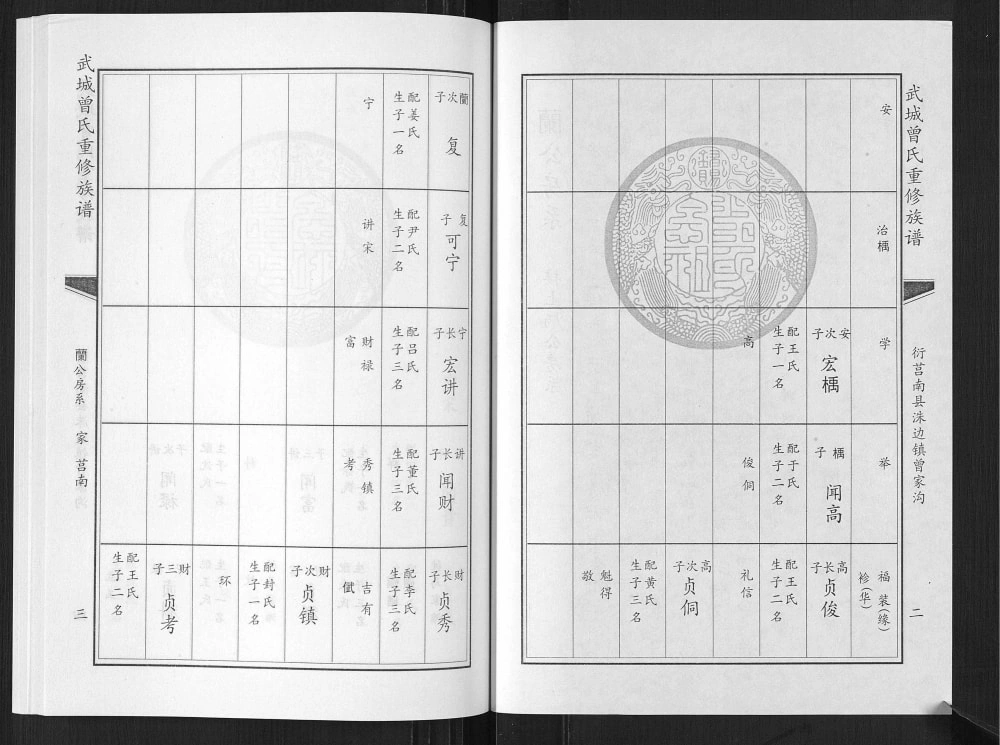 武城曾氏重修族谱
衍莒南县洙边镇曾家沟
二
安
治楀
学
举
福装(缘)
袗(华)
安次子
宏楀
配王氏
生子一名
高
楀子
闻高
配于氏
生子二名
俊侗
高长子
贞俊
配王氏
生子二名
礼信
高次子
贞侗
配黄氏
生子三名
魁得
敬
武城曾氏重修族谱
蘭公房系
家莒南
三
蘭次子
复
配姜氏
生子一名
宁
复子
可宁
配尹氏
生子二名
讲宋
宁长子
宏讲
配吕氏
生子三名
财禄
富
讲长子
闻财
配董氏
生子三名
秀镇
考
财长子
贞秀
配李氏
生子三名
吉有
财次子
贞镇
配封氏
生子一名
环
财三子
贞考
配王氏
生子二名